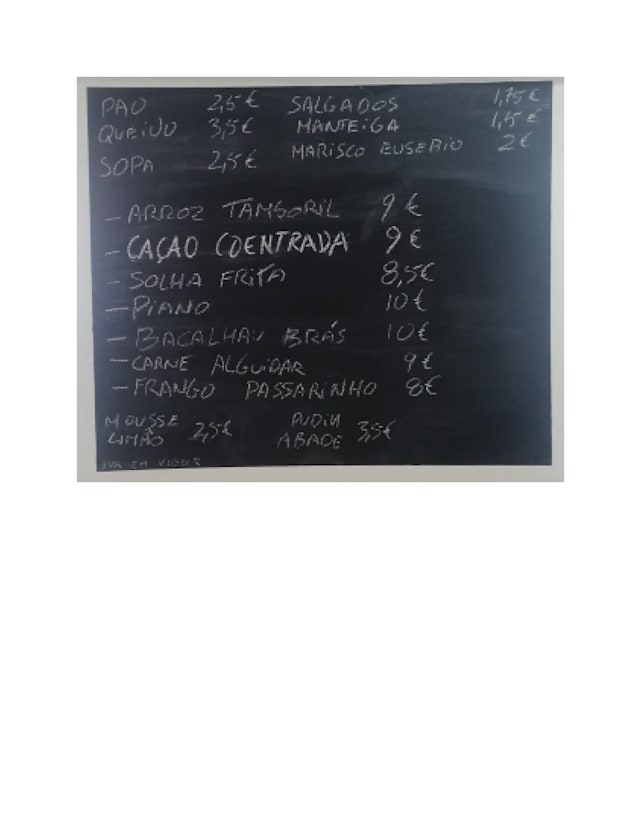 PAO 2,5€ SALGADOS 1,75€
QUEIJO 3,5€ MANTEIGA 1,15€
SOPA 2,5€ MARISCO EUSEBIO 2€
- ARROZ TAMBORIL 9€
- CAÇAO COENTRADA 9€
- SOLHA FRITA 8,5€
- PIANO 10€
- BACALHAU BRÁS 10€
- CARNE ALGUIDAR 9€
- FRANGO PASSARINHO 8€
MOUSSE LIMÃO 2,5€ PUDIM ABADE 3,5€
IVA EM VIGOR